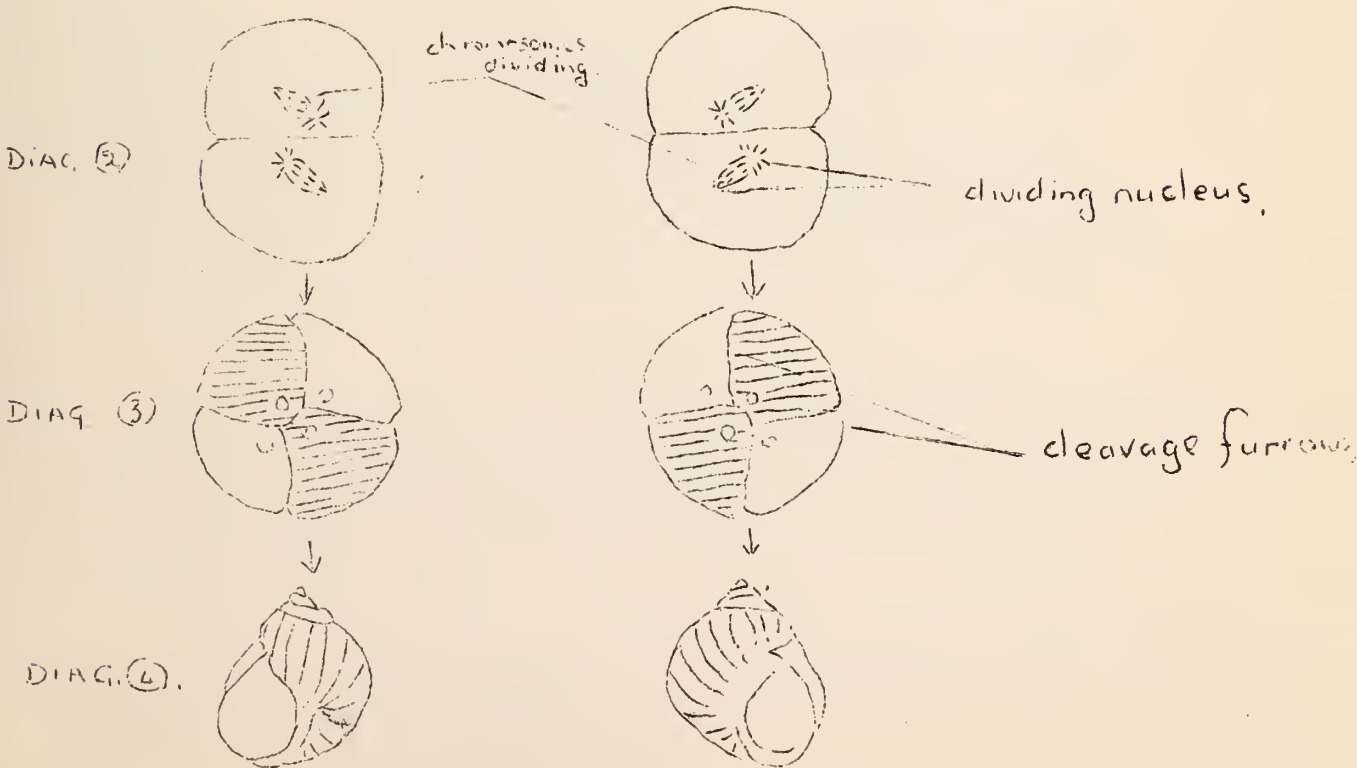 chromesomes
dividing.
DIAG. ②
dividing nucleus.
DIAG ③
cleavage furrows
DIAG. ④.